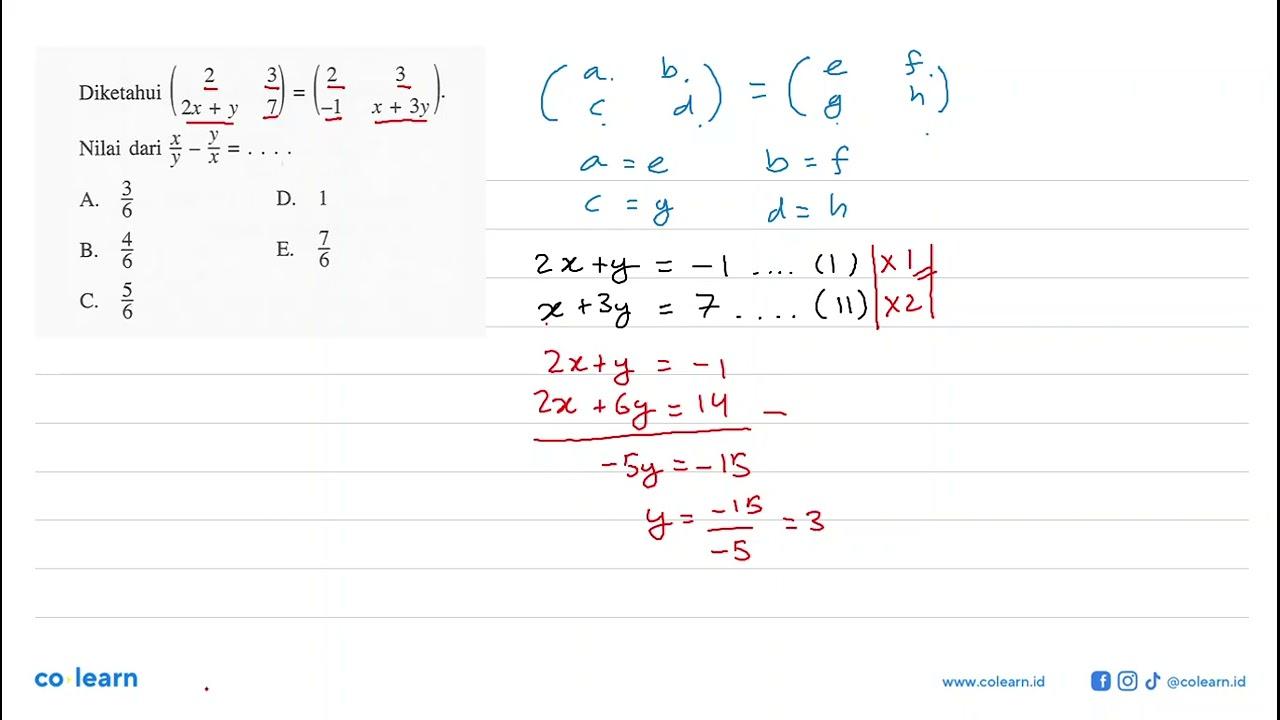 Diketahui (2 3 2x + y 7) = (2 3 -1 x + 3y).
Nilai dari x/y - y/x = . . . .
A. 3/6
D. 1
B. 4/6
E. 7/6
C. 5/6
(a. b. c d) = (e f. g h)
a = e b = f
c = g d = h
2x + y = -1 .... (I) | x 1 |
x + 3y = 7 .... (II) | x 2 |
2x + y = -1
2x + 6y = 14 -
-5y = -15
y = -15/-5 = 3
co learn
www.colearn.id
@colearn.id